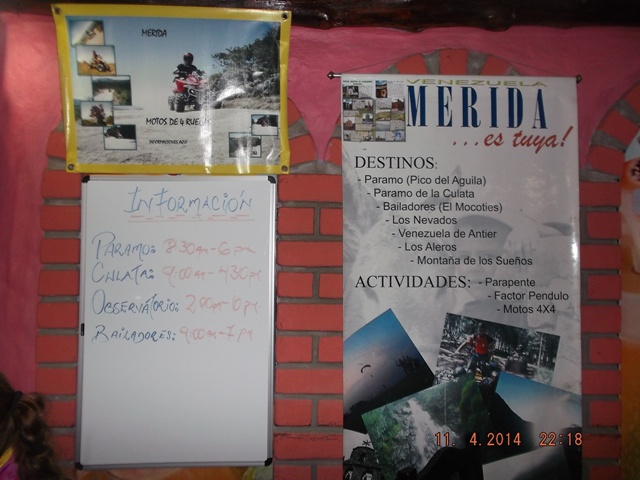 MERIDA
MOTOS DE 4 RUEDAS
INFORMACIONES AQUI
INFORMACIÓN
PARAMO: 8:30am-6pm
CULATA: 9:00am-4:30pm
OBSERVATORIO: 2:00pm-6pm
BAILADORES: 9:00am-7pm
VENEZUELA
MERIDA
...es tuya!
DESTINOS:
- Paramo (Pico del Aguila)
- Paramo de la Culata
- Bailadores (El Mocoties)
- Los Nevados
- Venezuela de Antier
- Los Aleros
- Montaña de los Sueños
ACTIVIDADES: - Parapente
- Factor Pendulo
- Motos 4X4
11. 4.2014 22:18